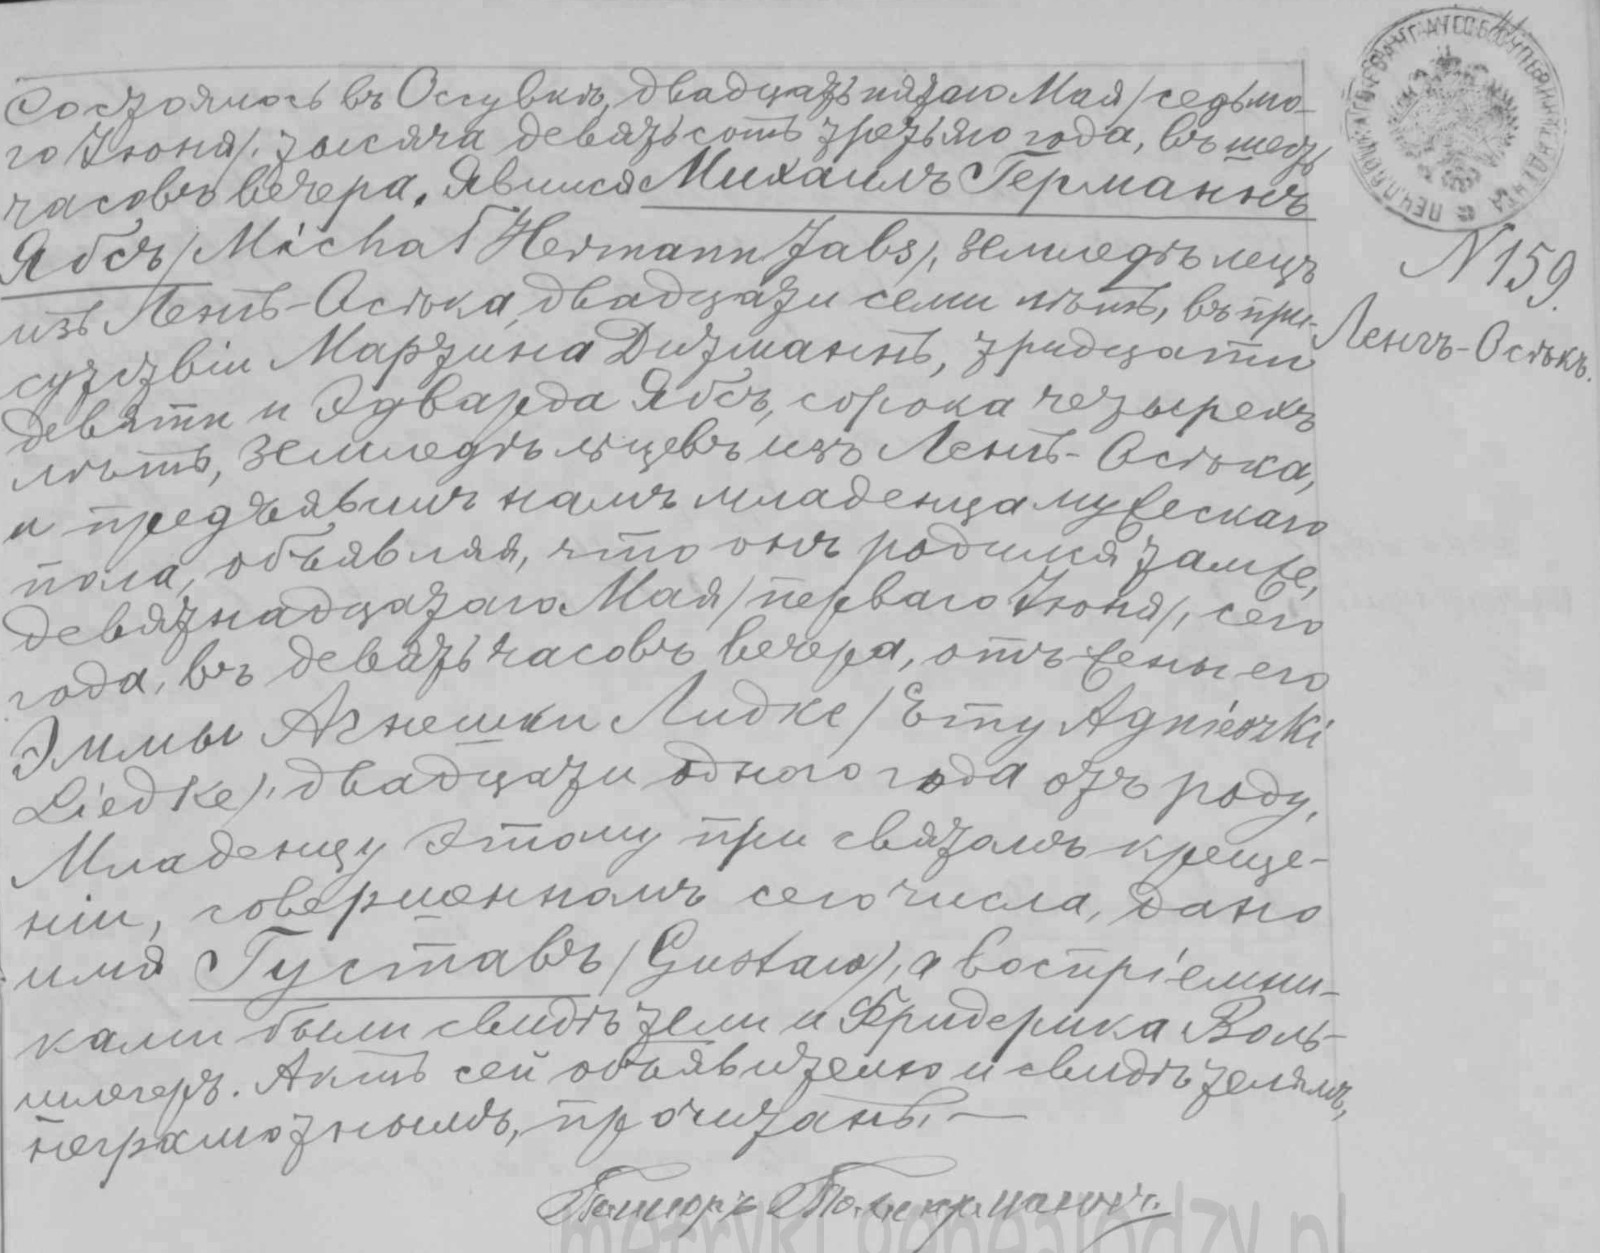 Состоялось въ Оссувкѣ, двадцать пятаго Мая /седьма-
го Іюня/, тысяча девятьсотъ третьяго года, въ шесть
часовъ вечера. Явился Михаилъ Германнъ
Ябсъ /Michał Hermann Jabs/, земледѣлецъ
изъ Ленгъ-Осѣка, двадцати семи лѣтъ, въ при-
сутствіи Мартина Дитманнъ, тридцати
девяти и Эдварда Ябсъ, сорока четырехъ
лѣтъ, земледѣльцевъ изъ Ленгъ-Осѣка,
и предъявилъ намъ младенца мужескаго
пола, объявляя, что онъ родился тамже,
девятнадцатаго Мая /перваго Іюня/, сего
года, въ девять часовъ вечера, отъ жены его
Эммы Агнешки Лидке /Emy Agnieszki
Liedke/, двадцати одного года отъ роду.
Младенцу этому при святомъ креще-
ніи, совершенномъ сего числа, дано
имя Густавъ /Gustaw/, а воспріемни-
ками были свидѣтели и Фридерика Воль-
шлегеръ. Актъ сей объявителю и свидѣтелямъ,
неграмотнымъ, прочитанъ. —
Пасторъ
N 159.
Ленгъ-Осѣкъ.
metryki.genealodzy.pl